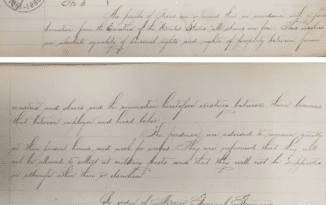 No. 3
The people of Texas are informed that in accordance with a
Proclamation from the Executive of the United States, "all slaves are free." This involves
an absolute equality of personal rights and rights of property between former
masters and slaves and the connection heretofore existing between them becomes
that between employer and hired labor.
The freedmen are advised to remain quietly
at their present homes, and work for wages. They are informed that they will
not be allowed to collect at military posts and that they will not be supported
in idleness either there or elsewhere.
By order of Major General Granger